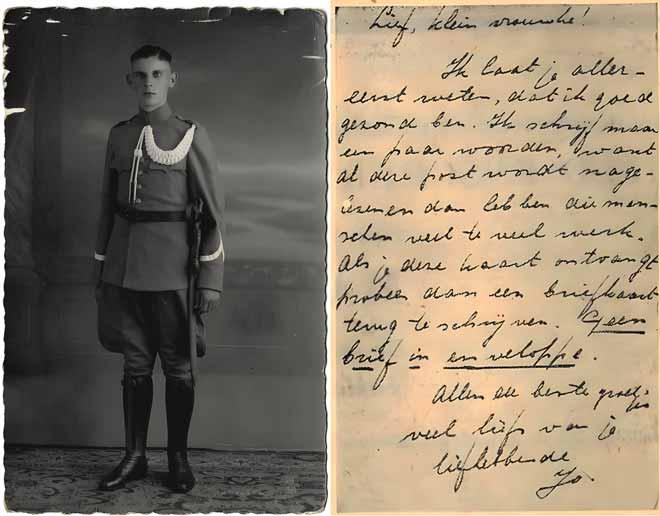 Lief, klein vrouwke!
Ik laat je aller-
eerst weten, dat ik goed
gezond ben. Ik schrijf maar
een paar woorden, want
al deze post wordt nage-
lezen en dan hebben die men-
schen veel te veel werk.
Als je deze kaart ontvangt
probeer dan een briefkaart
terug te schrijven. Geen
brief in enveloppe.
Allen de beste groetjes
veel liefs van je
liefhebbende
Jo